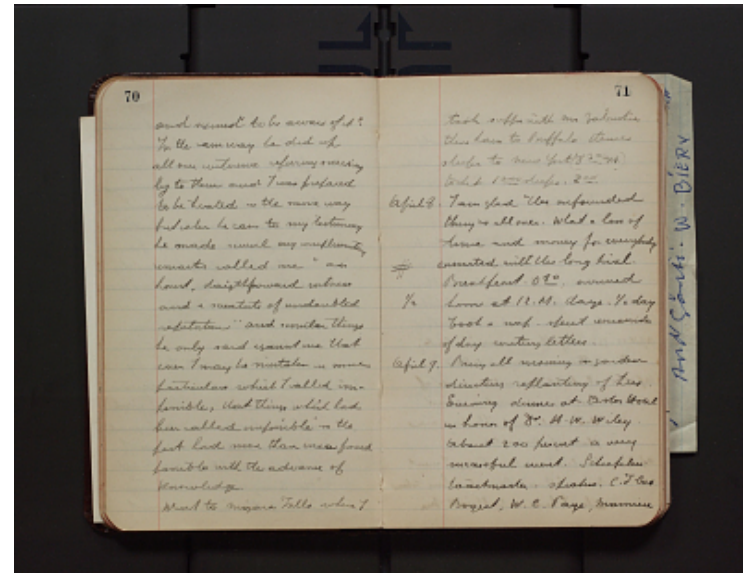 70
and seemed to be aware of it.
In the same way he did up
all our witnesses referring
by to them and I was prepared
to be treated in the same way
but when he came to my testimony
he made several very complimentary
remarks called me "an
honest, straightforward witness
and a scientist of undoubted
reputation" and similar things
he only said against me that
even I may be mistaken in some
particulars which I called im-
possible, that things which had
been called impossible in the
past had more than once found
possible with the advance of
knowledge.
Went to Niagara Falls where I
71
took supper with Mr Valentine
then train to Buffalo thence
sleeper to New York
April 8. I am glad this confounded
thing is all over. What a loss of
time and money for everybody
connected with this long trial.
Breakfast arrived
home at 12 M. day
Took a nap. spent
of day writing letters.
April 9. Busy all morning in garden
directing replanting of trees
Evening dinner at Hotel
in honor of Dr. H. W. Wiley
About 200 present a very
successful event. Schieffelin
toastmaster. speakers. C. F.
Bogert, W. C.
And Gönti. W. BIERY